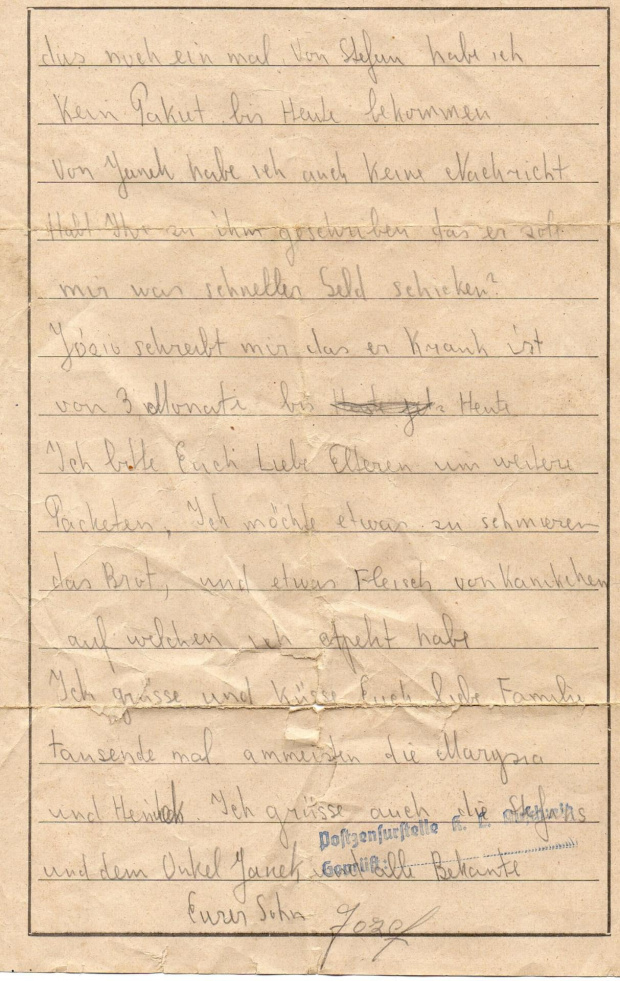 das noch ein mal. Von Stefan habe ich
kein Paket bis Heute bekommen
Von Janek habe ich auch keine Nachricht
Habt Ihr zu ihm geschrieben das er soll
mir was schneller Geld schicken?
Józio schreibt mir das er Krank ist
von 3 Monate bis Heute
Ich bitte Euch Liebe Elteren um weitere
Packeten, Ich möchte etwas zu schmieren
das Brot, und etwas Fleisch von Kaninchen
auf welchen ich apetit habe
Ich grüsse und Küsse Euch liebe Familie
tausende mal ammeisten die Marysia
und Heniek. Ich grüsse auch die Stefans
Postzensurstelle K. L.
und dem Onkel Janek, und alle Bekante
Geprüft:
Eurer Sohn Jozef